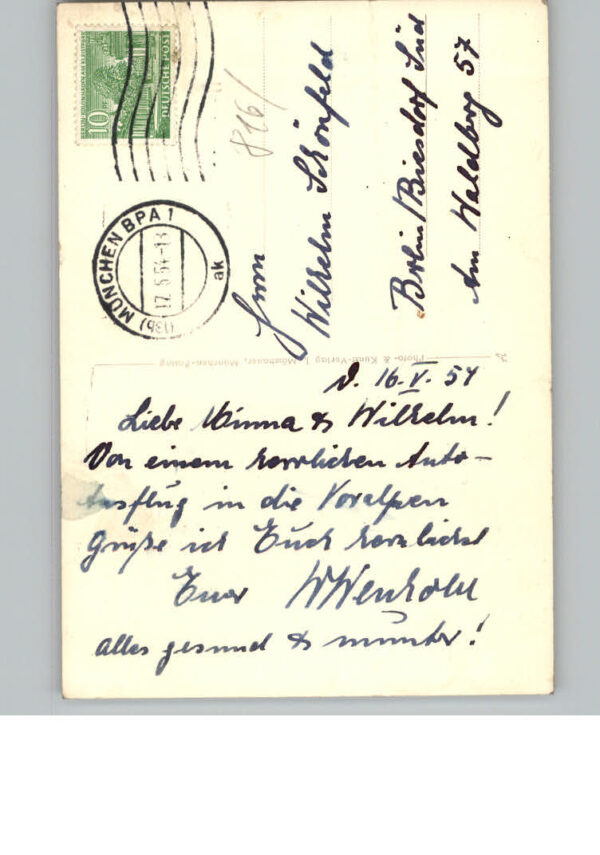 10
DEUTSCHE POST
(13b) MÜNCHEN BPA 1
17.5.54-13
ak
816/
Herrn
Wilhelm Schönfeld
Berlin/Biesdorf Süd
Am Waldberg 57
Photo- & Kunst-Verlag
München-Pasing
d. 16.V.54
Liebe Minna & Wilhelm!
Von einem herrlichen Auto-
Ausflug in die Voralpen
Grüße ich Euch herzlichst
Euer
alles gesund & munter!